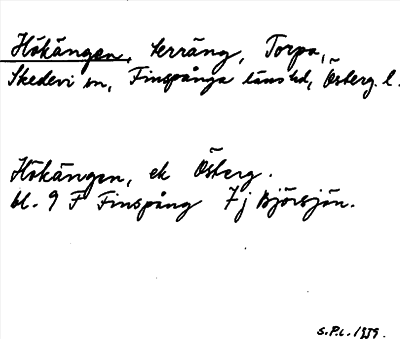 Hökängen, terräng, Torpa,
Skedevi sn, Finspånga läns hd, Österg. l.
Hökängen, ek Österg.
bl. 9 F Finspång 7 j Björsjön.
S.P.L. 1959.